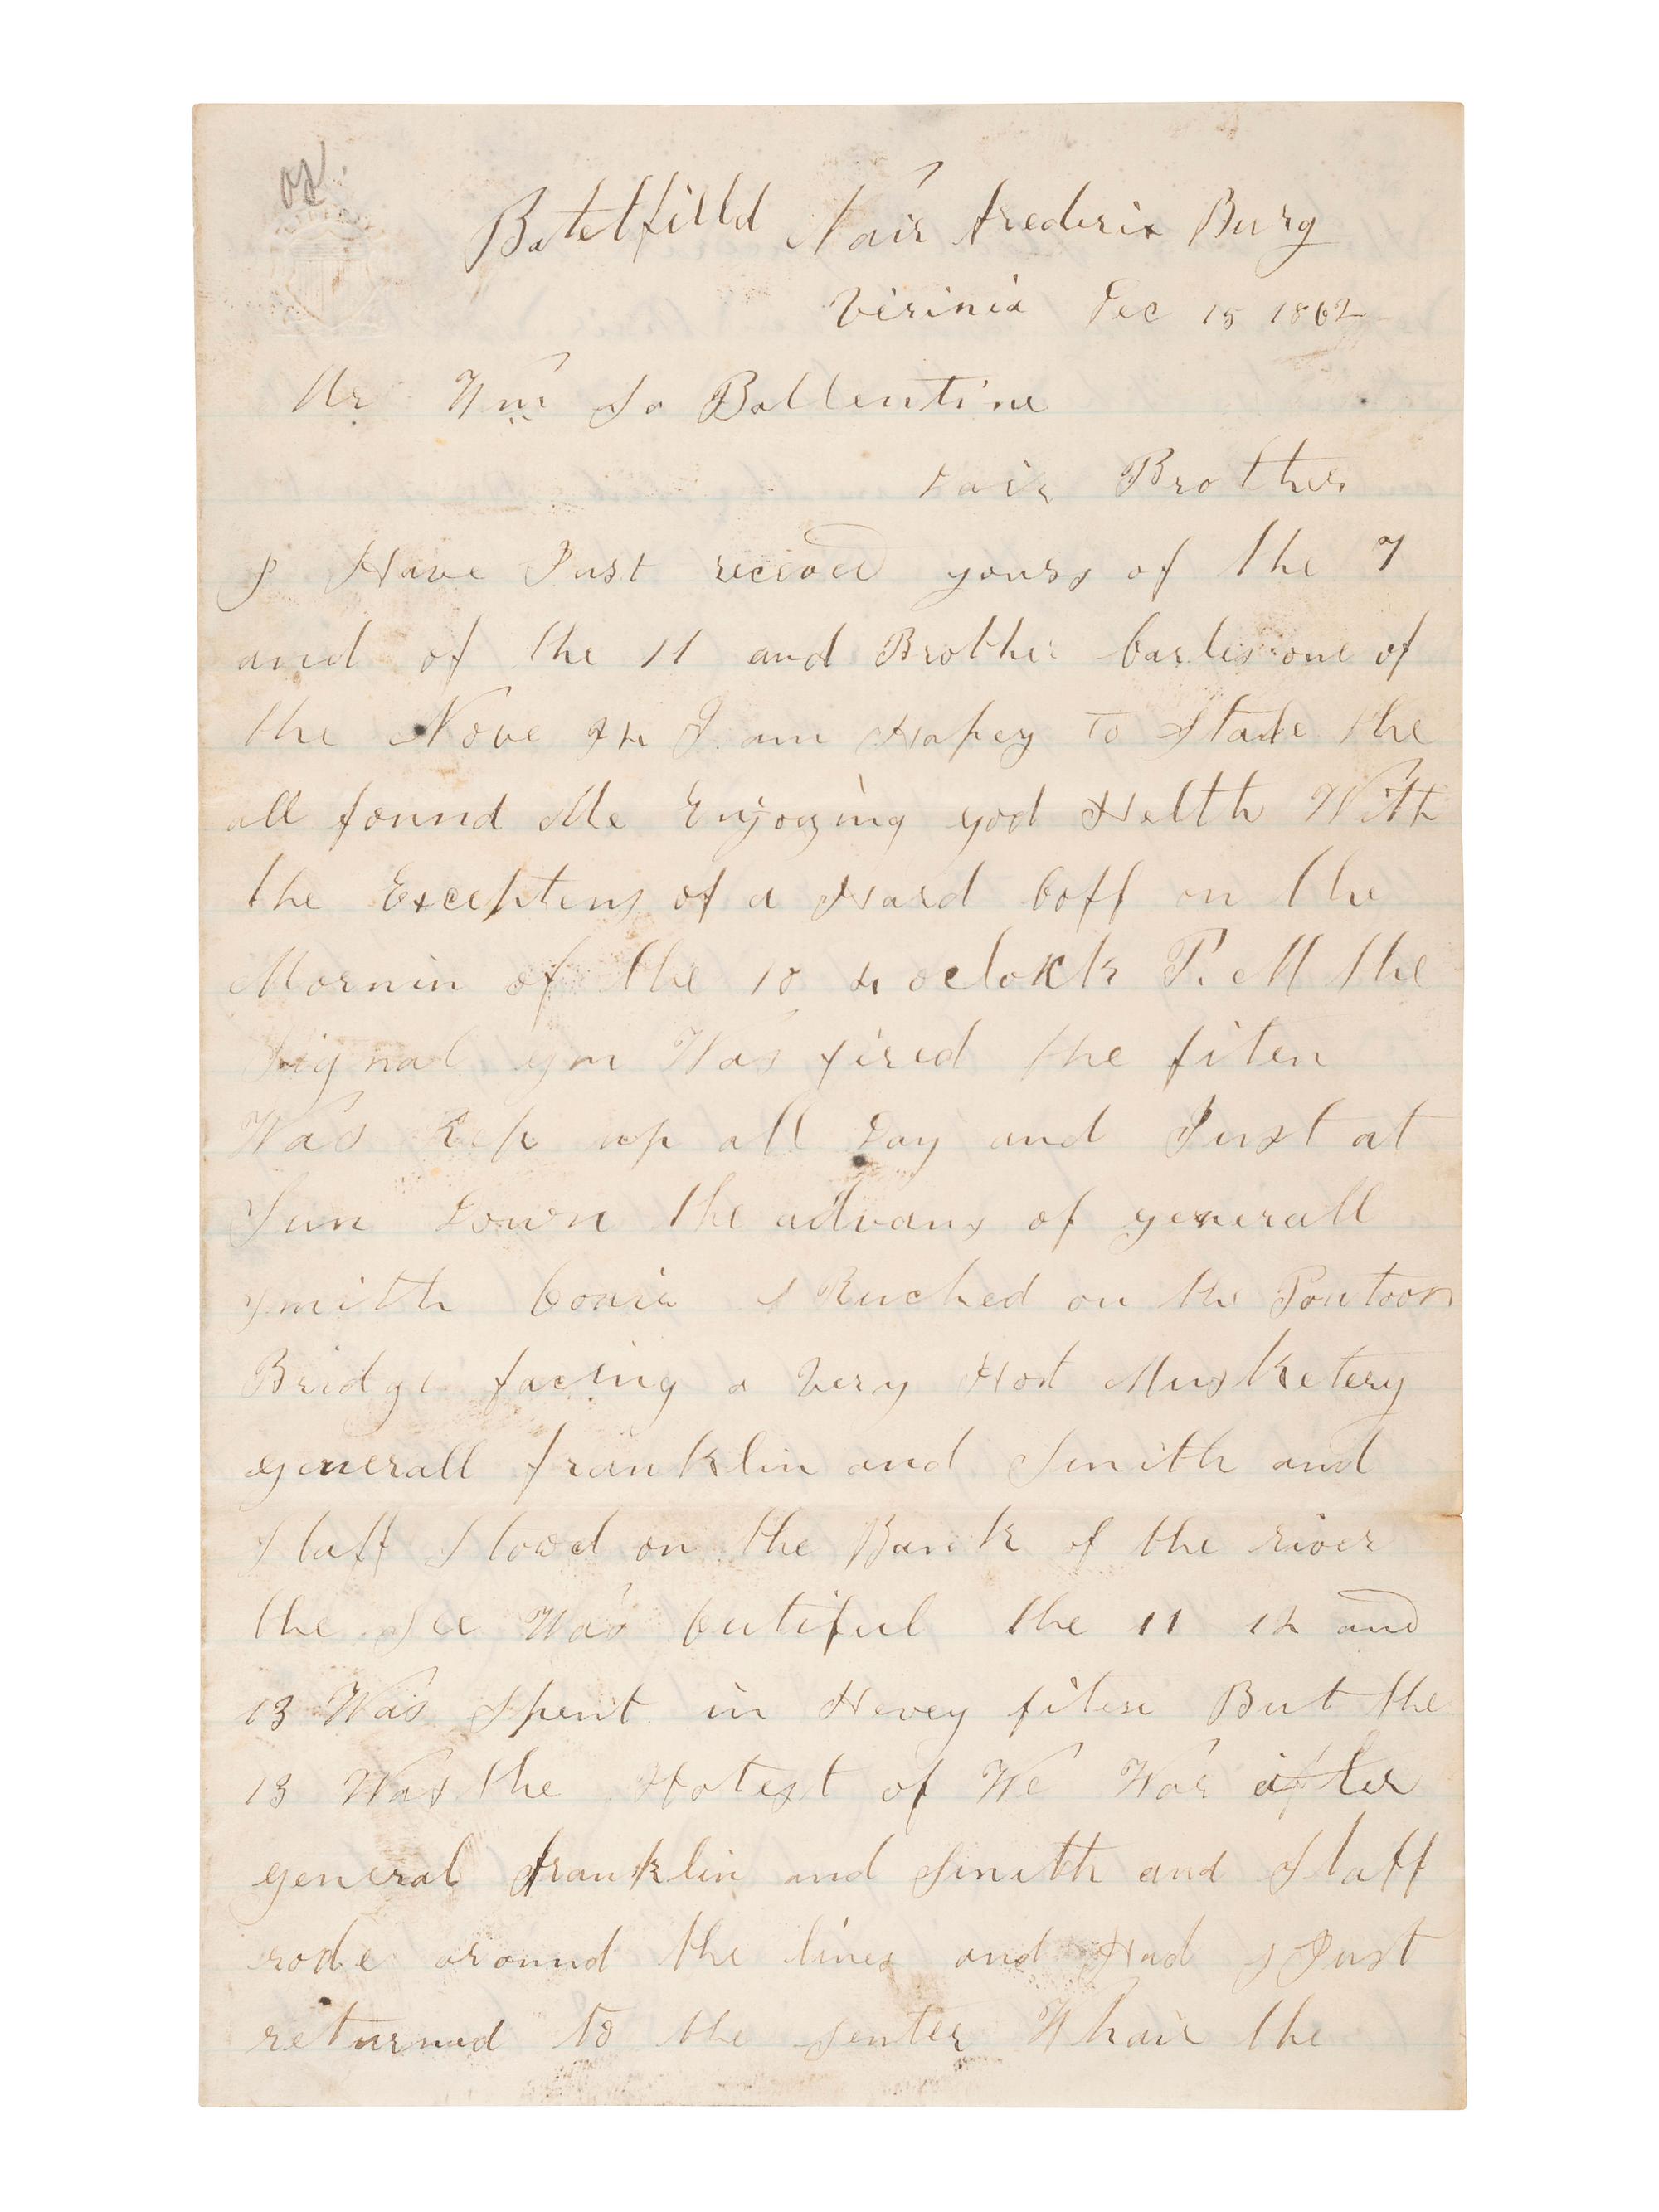 Batelfilld Nair frederix Burg
Virinia Dec 15 1862
Mr Wm Ja Ballentine
Dair Brother
I Have Just recived yours of the 7
and of the 11 and Brother Carles one of
the Nove I am Hapey to State the
all found Me Enjoying god Helth With
the Exceptens of a Hard Coff on the
Mornin of the 10 4 oclokk P. M the
Signal gun Was fired the fiten
Was Kep up all Day and Just at
Sun Down the advans of generall
Smith Coair Ruched on the Pontoon
Bridge facing a very Hot Musketery
generall franklin and Smith and
Staff Stood on the Bank of the river
the See Was butiful the 11 12 and
13 Was Spent in Hevey fiten But the
13 Was the Hotest of We War after
general franklin and Smith and Staff
rode around the lines and Had Just
returned to the Senter Whair the